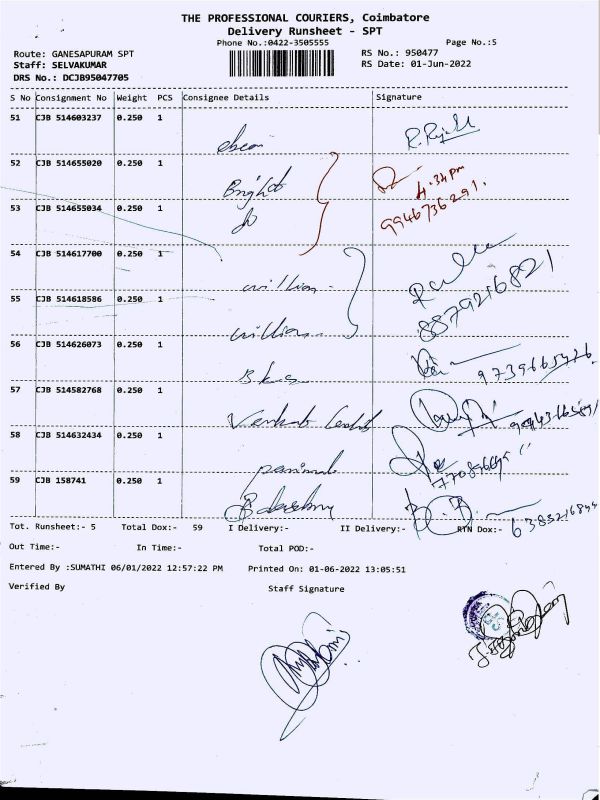 THE PROFESSIONAL COURIERS, Coimbatore
Delivery Runsheet - SPT
Phone No.:0422-3505555 Page No.:5
Route: GANESAPURAM SPT RS No.: 950477
Staff: SELVAKUMAR RS Date: 01-Jun-2022
DRS No.: DCJB95047705
S No Consignment No Weight PCS Consignee Details Signature
51 CJB 514603237 0.250 1
52 CJB 514655020 0.250 1 4.34 pm
9946736291.
53 CJB 514655034 0.250 1
54 CJB 514617700 0.250 1 william
8879216821
55 CJB 514618586 0.250 1 william
56 CJB 514626073 0.250 1 9739665426
57 CJB 514582768 0.250 1
58 CJB 514632434 0.250 1
59 CJB 158741 0.250 1
Tot. Runsheet:- 5 Total Dox:- 59 I Delivery:- II Delivery:- RTN Dox:-
Out Time:- In Time:- Total POD:-
Entered By :SUMATHI 06/01/2022 12:57:22 PM Printed On: 01-06-2022 13:05:51
Verified By Staff Signature